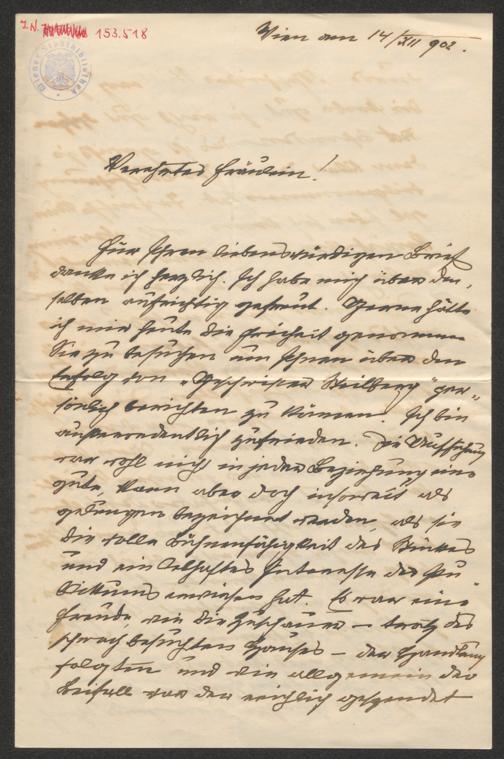 I.N. 153.518
Wiener Stadtbibliothek
Wien am 14/XII 902.
Verehrtes Fräulein!
Für Ihren liebenswürdigen Brief
danke ich herzlich. Ich habe mich über den-
selben aufrichtig gefreut. Gerne hätte
ich mir heute die Freiheit genommen
Sie zu besuchen um Ihnen über den
Erfolg von „Geschwister" per-
sönlich berichten zu können. Ich bin
außerordentlich zufrieden. Die Aufführung
war wohl nicht in jeder Beziehung eine
gute kann aber doch insoweit als
gelungen bezeichnet werden, als sie
die volle Bühnenfähigkeit des Stückes
und ein lebhaftes Interesse des Pu-
blikums erwiesen hat. Es war eine
Freude, wie die Zuschauer – trotz des
schwach besuchten Hauses – der Handlung
folgten und wie allgemein der
Beifall war der reichlich gespendet